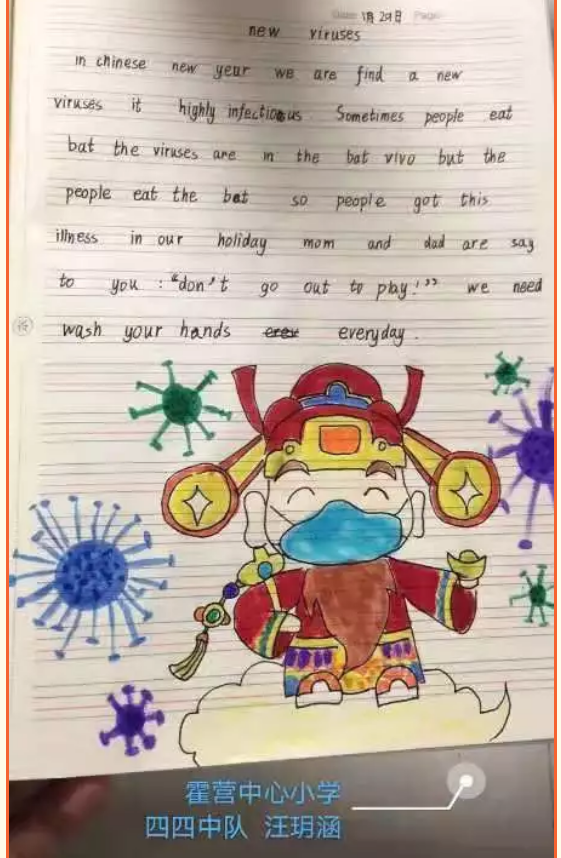 Date: 1月29日 Page:
new viruses
in chinese new year we are find a new
viruses it highly infectious Sometimes people eat
bat the viruses are in the bat vivo but the
people eat the bat so people got this
illness in our holiday mom and dad are say
to you : "don't go out to play!" we need
wash your hands everyday.
霍营中心小学
四四中队 汪玥涵